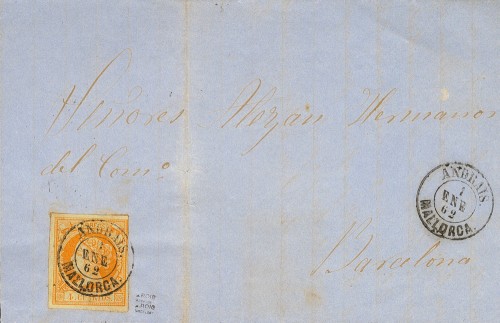 Señores Hermanos
del Com.º
Barcelona
ANDRAIS.
1
ENE
62
MALLORCA.
ANDRAIS.
1
ENE
62
MALLORCA.